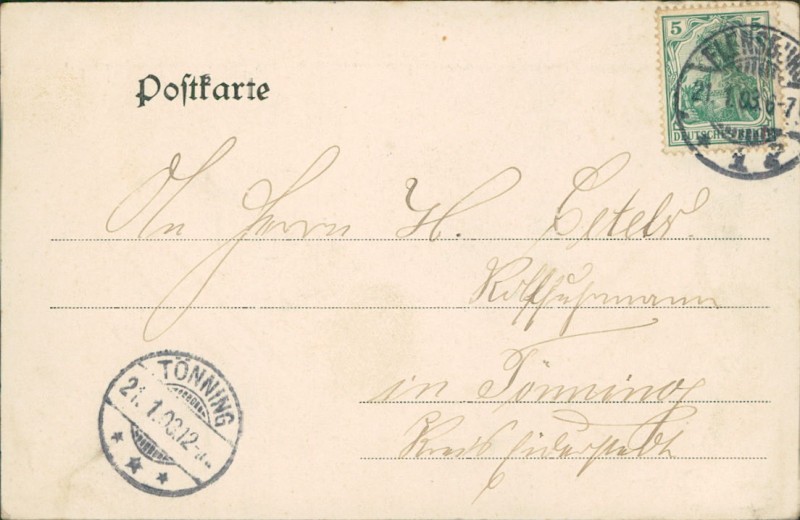 5 5
DEUTSCH
FLENSBURG
21. 1. 03. 6-7
* 1 2
Postkarte
An Herrn H.
in Tönning
Kreis Eiderstedt
TÖNNING
21. 1. 03. 12-
* * *